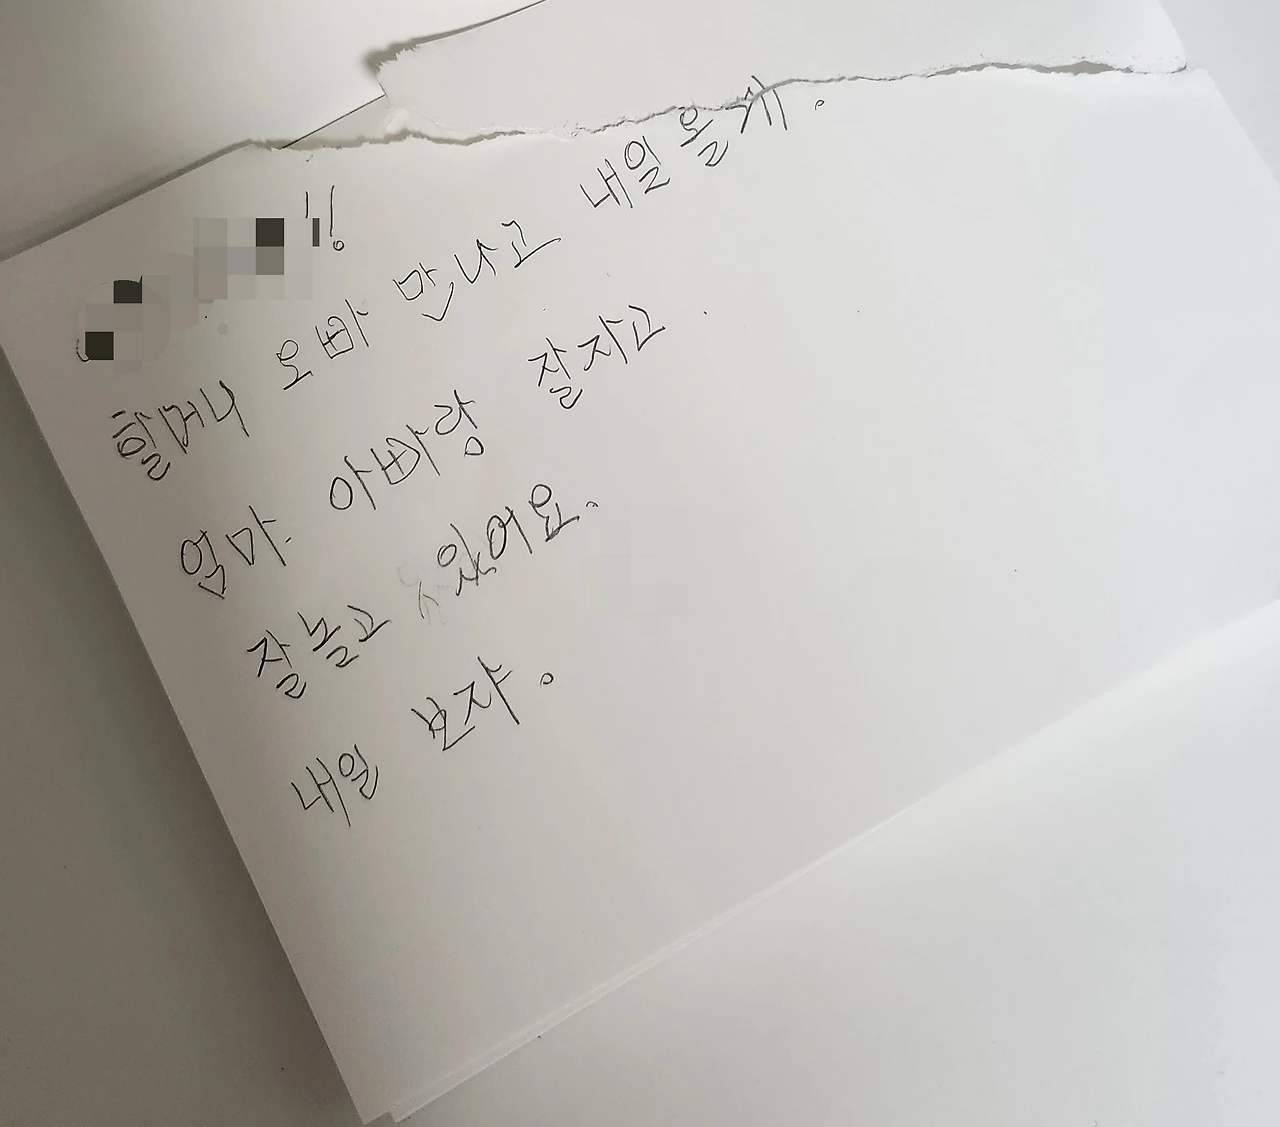 !!
할머니 오빠 만나고 내일 올게.
엄마 아빠랑 잘자고
잘놀고 있어요.
내일 보자.